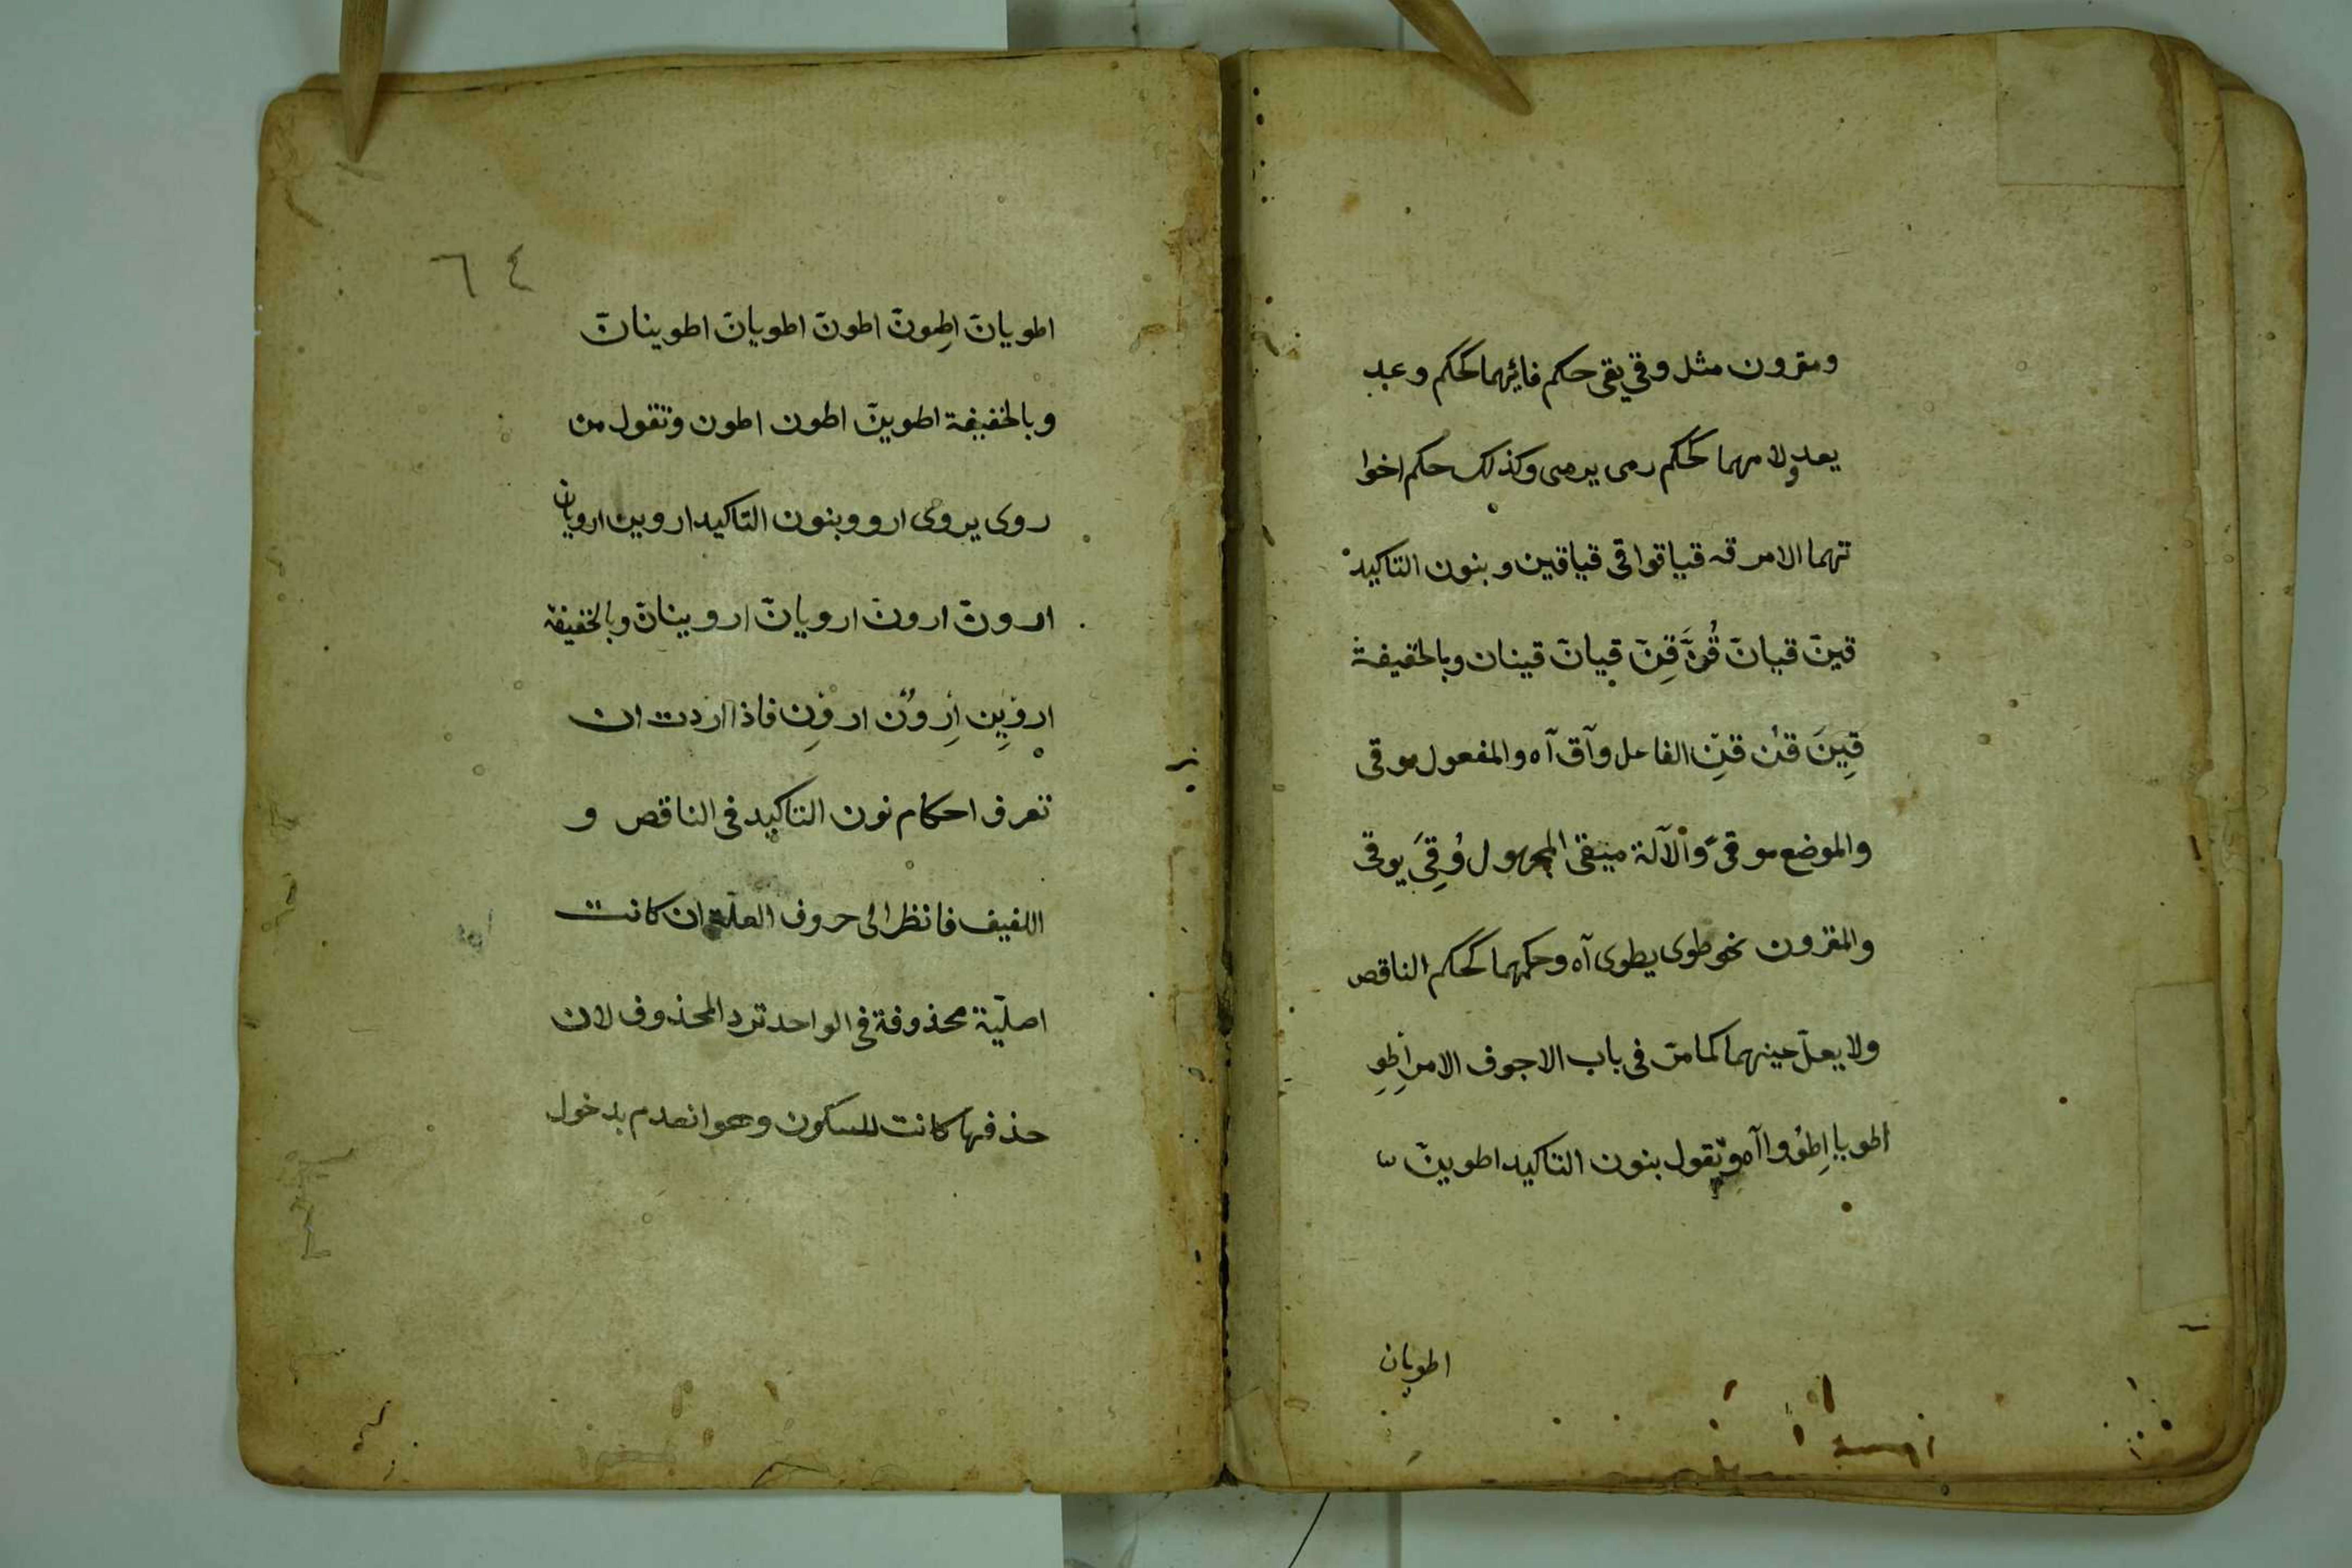 ومقرون مثل وقى يقى حكم فائهما كحكم وعد
يعد ولامهما كحكم رمى يرمى وكذلك حكم اخوا
تهما الامر قه قيا قوا قى قيا قين وبنون التاكيد
قينّ قيانّ قُنَّ قِنّ قيانّ قينان وبالخفيفة
قِينَ قنْ قنِ الفاعل واق آه والمفعول موقى
والموضع موقىً والآلة ميقى المجهول وُقِىَ يوقى
والمقرون نحو طوى يطوى آه وحكمهما كحكم الناقص
ولا يعلّ عينهما كما مرّ فى باب الاجوف الامر اِطْوِ
اطويا اِطوُوا آه وتقول بنون التاكيد اطوينّ
اطويان
٦٤
اطويانّ اِطِونّ اطونّ اطويانّ اطوينانّ
وبالخفيفة اطوينَ اطون اطون وتقول من
روى يروى ارو وبنون التاكيد اروين ارويان
ارونّ ارونّ ارويانّ اروينانّ وبالخفيفة
اروِيِن اِروُن اروِن فاذا اردت ان
تعرف احكام نون التاكيد فى الناقص و
اللفيف فانظر الى حروف العلّة ان كانت
اصليّة محذوفة فى الواحد ترد المحذوف لان
حذفها كانت للسكون وهو انعدم بدخول